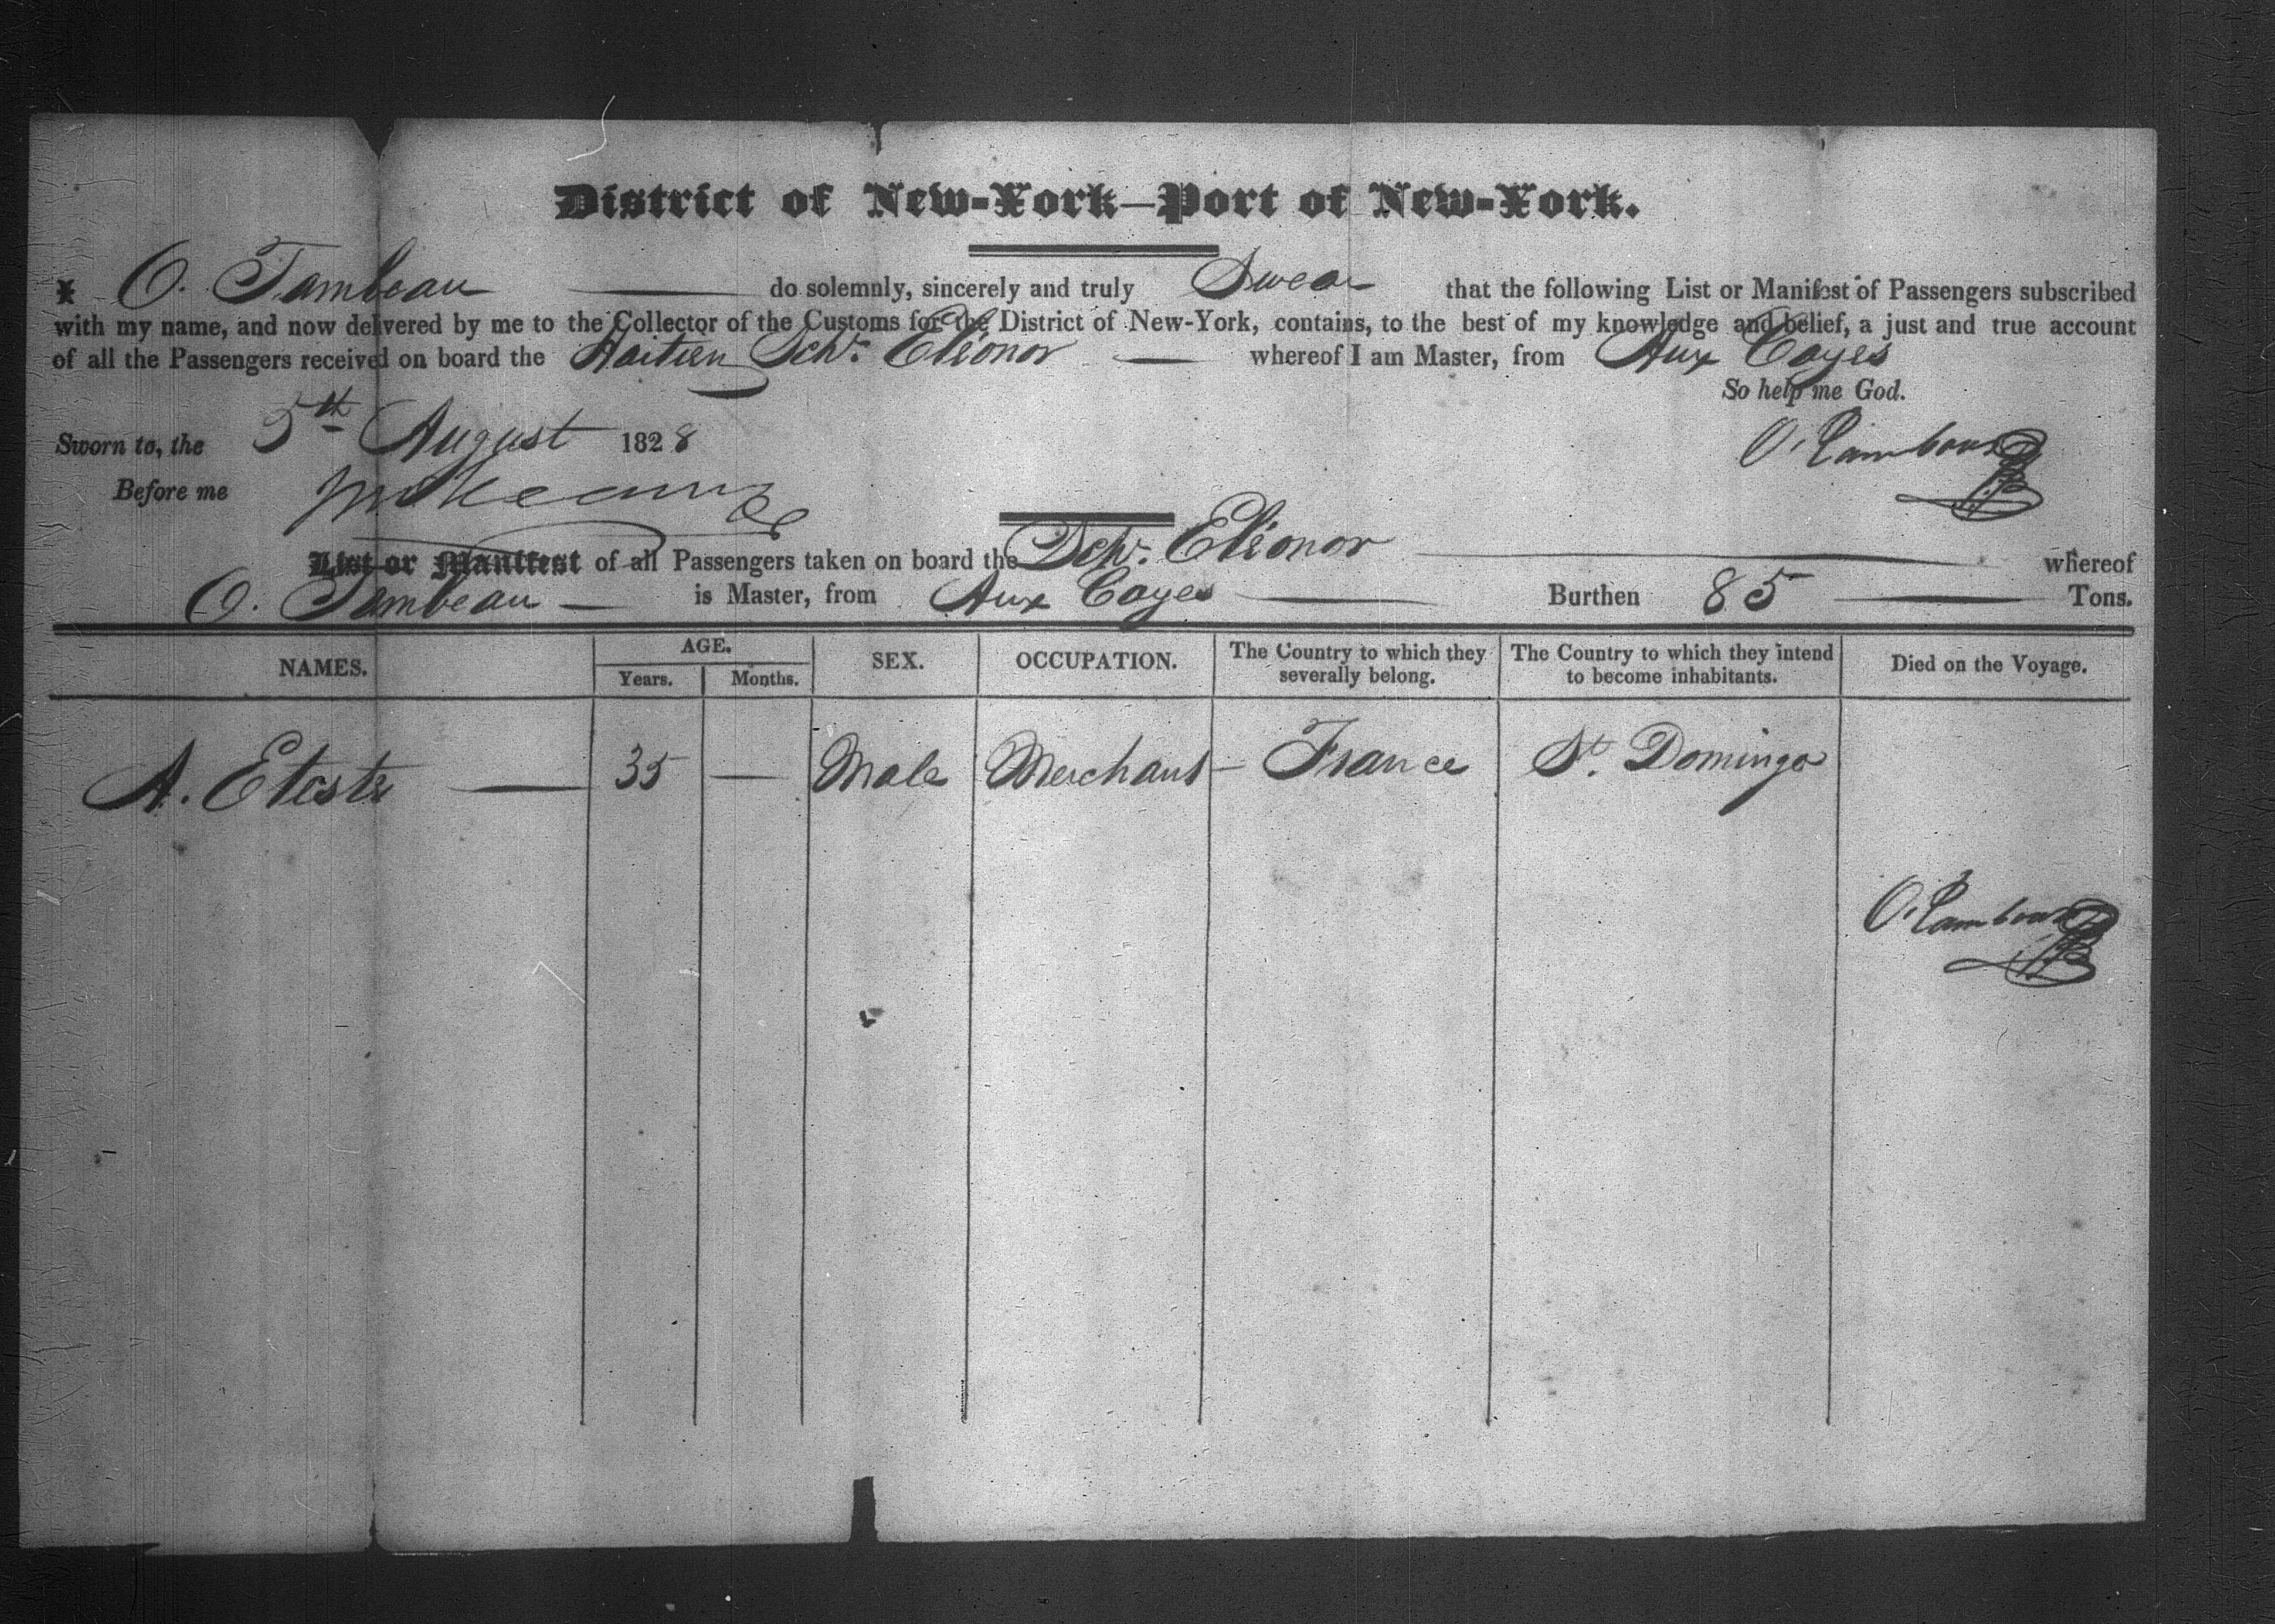 District of New-York—Port of New-York.
I O. Tambeau do solemnly, sincerely and truly Swear that the following List or Manifest of Passengers subscribed
with my name, and now delivered by me to the Collector of the Customs for the District of New-York, contains, to the best of my knowledge and belief, a just and true account
of all the Passengers received on board the Haitien Schr. Eleonor whereof I am Master, from Aux Cayes
So help me God.
Sworn to, the 5th August 1828
Before me
List or Manifest of all Passengers taken on board the Schr. Eleonor whereof
O. Tambeau is Master, from Aux Cayes Burthen 85 Tons.
NAMES. AGE. Years. Months. SEX. OCCUPATION. The Country to which they severally belong. The Country to which they intend to become inhabitants. Died on the Voyage.
A. 35 — Male Merchant France St. Domingo